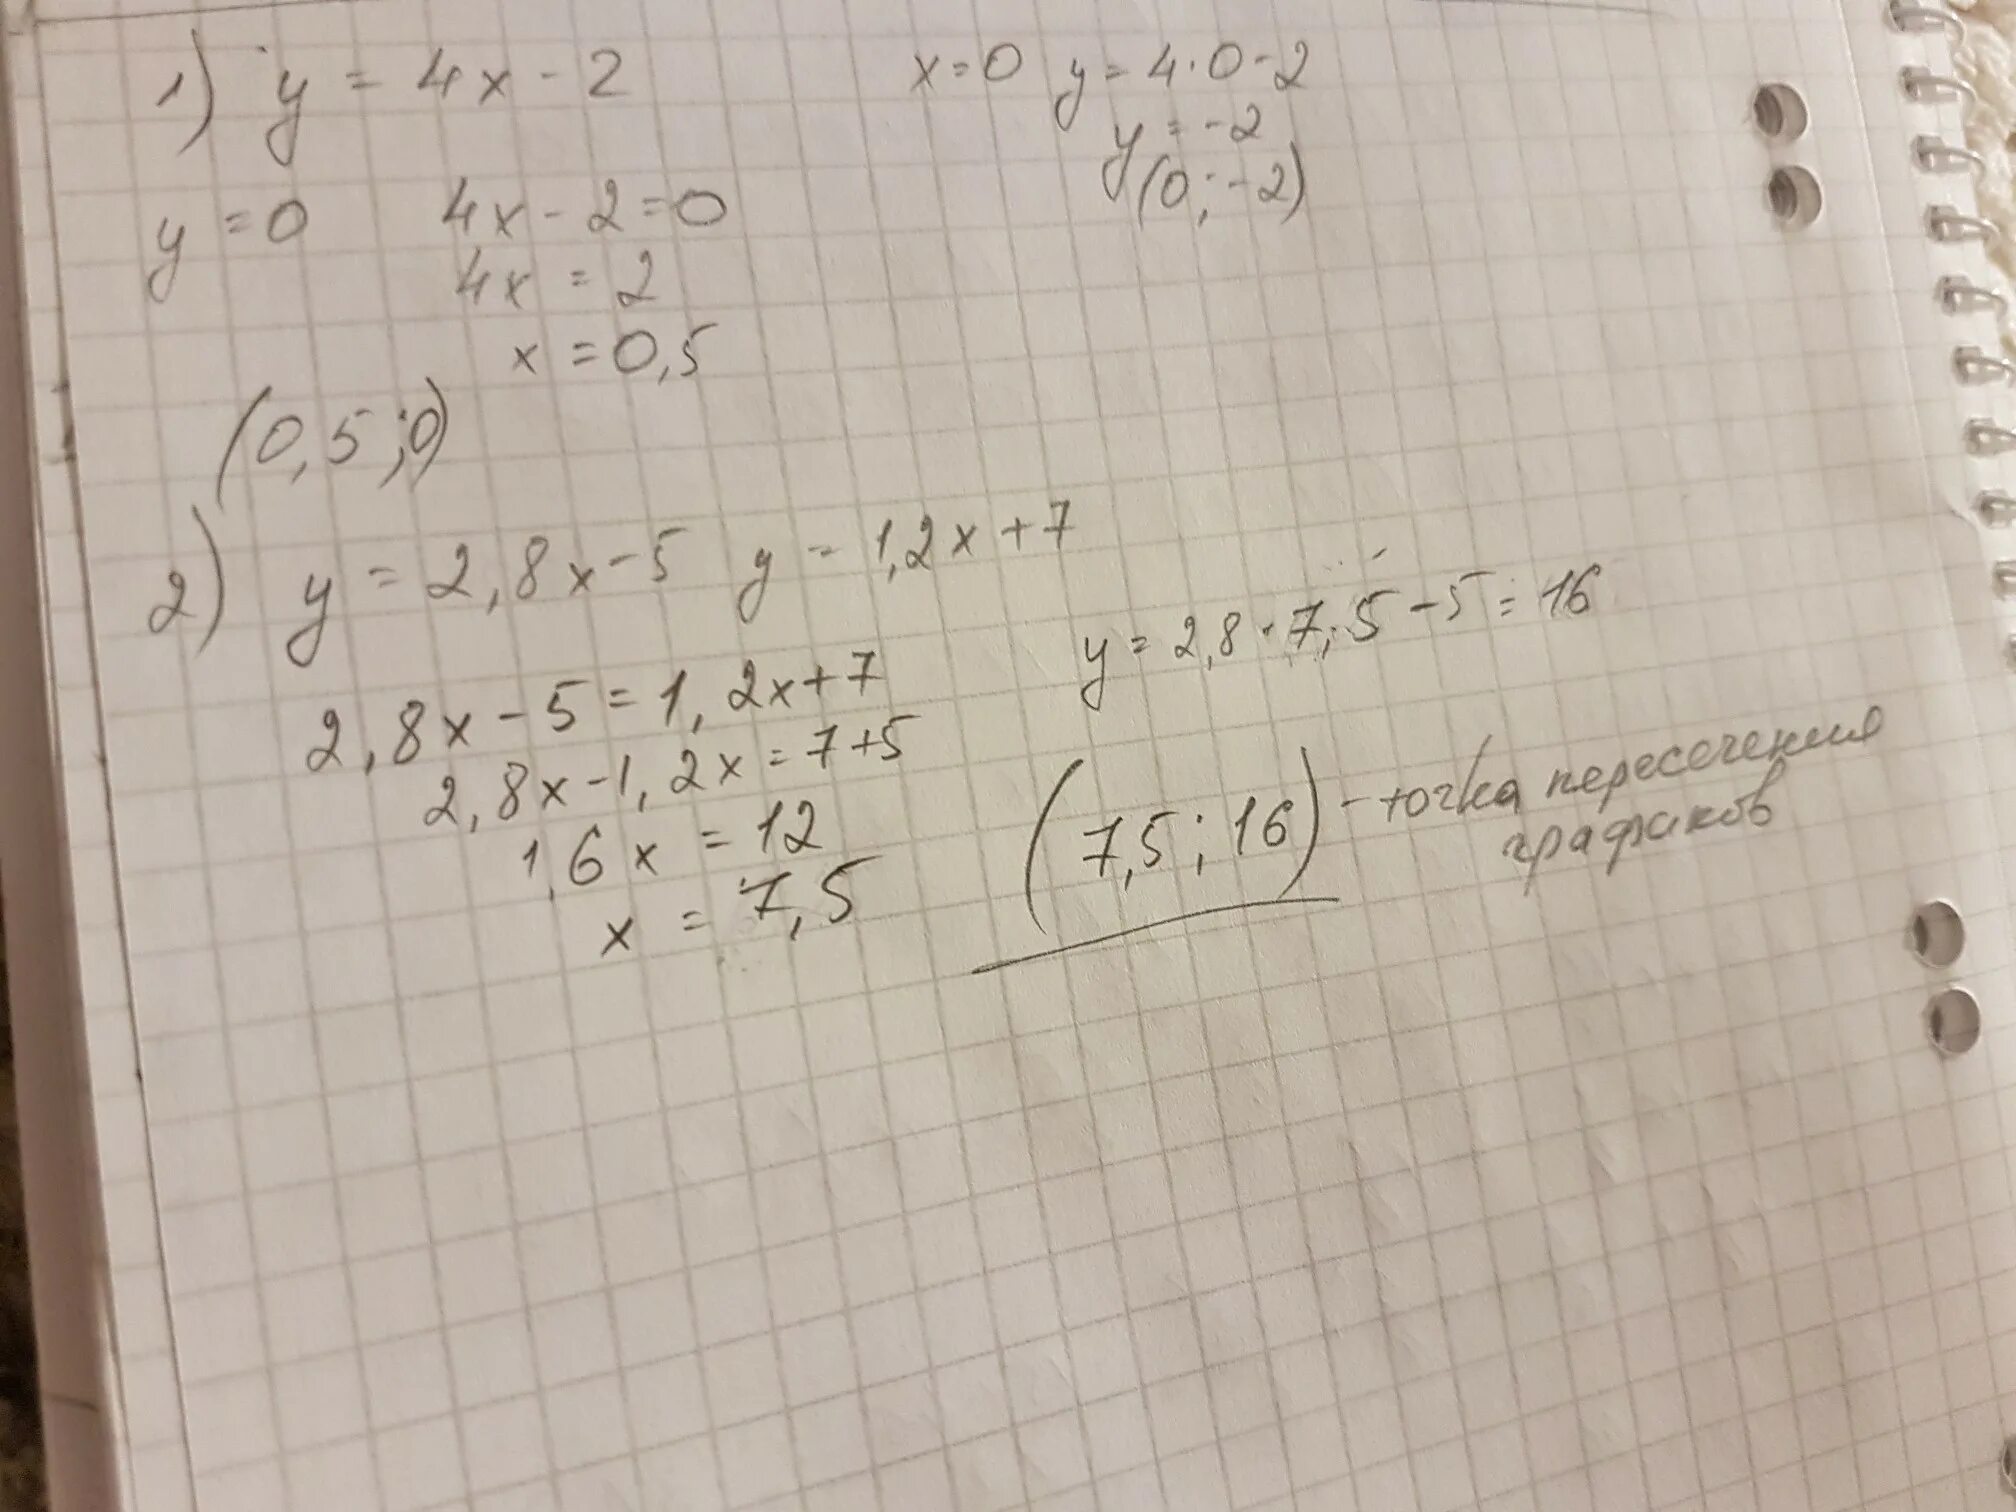 1) y = 4x - 2
y = 0 4x - 2 = 0
4x = 2
x = 0,5
(0,5;0)
x = 0 y = 4·0-2
y = -2
(0; -2)
2) y = 2,8x - 5 y = 1,2x + 7
2,8x - 5 = 1,2x + 7
2,8x - 1,2x = 7 + 5
1,6x = 12
x = 7,5
y = 2,8 · 7,5 - 5 = 16
(7,5; 16) - точка пересечения
графиков